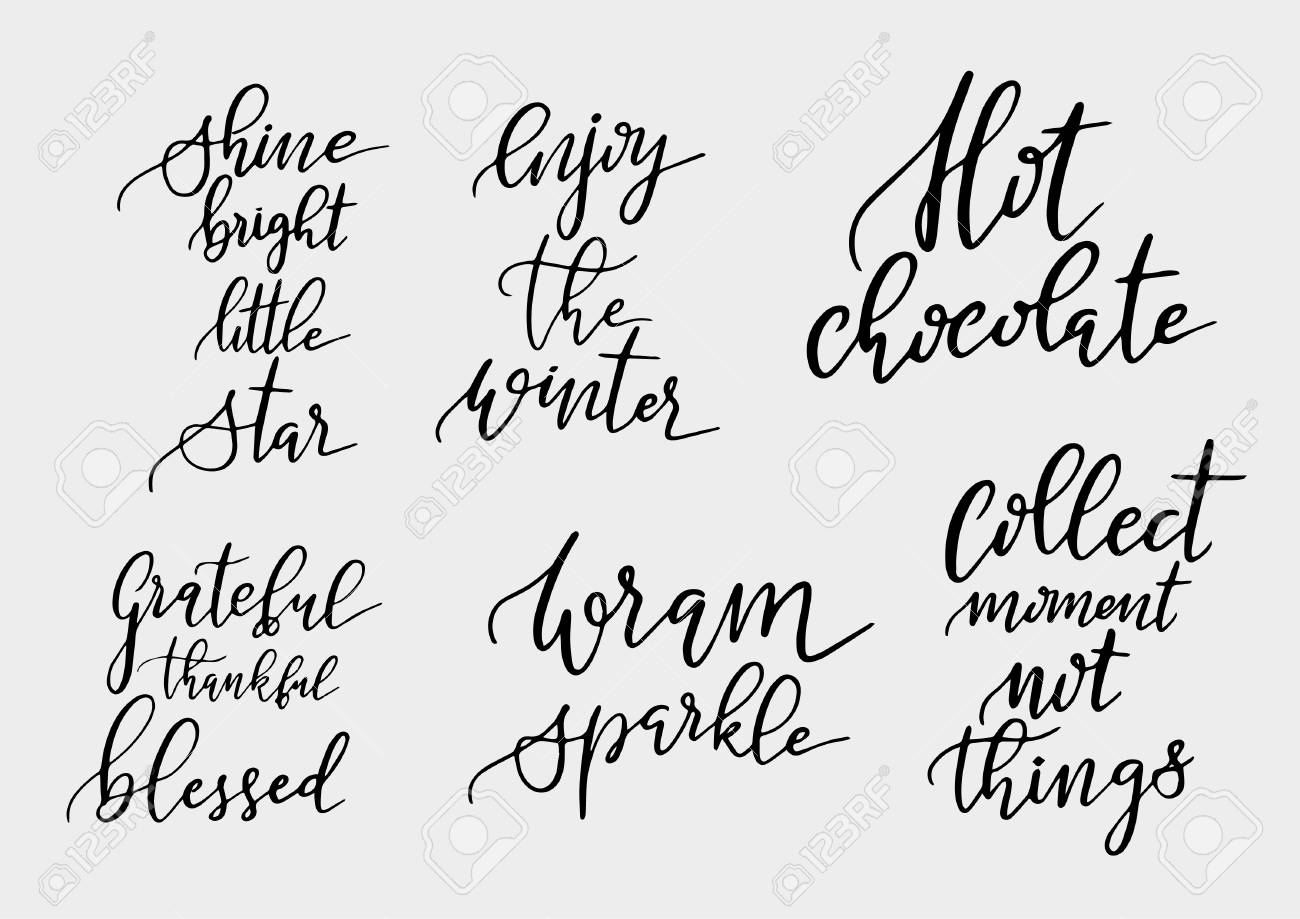 Shine
bright
little
star
Enjoy
the
winter
Hot
chocolate
Grateful
thankful
blessed
Wram
sparkle
Collect
moment
not
things
123RF
123RF
123RF
123RF
123RF
123RF